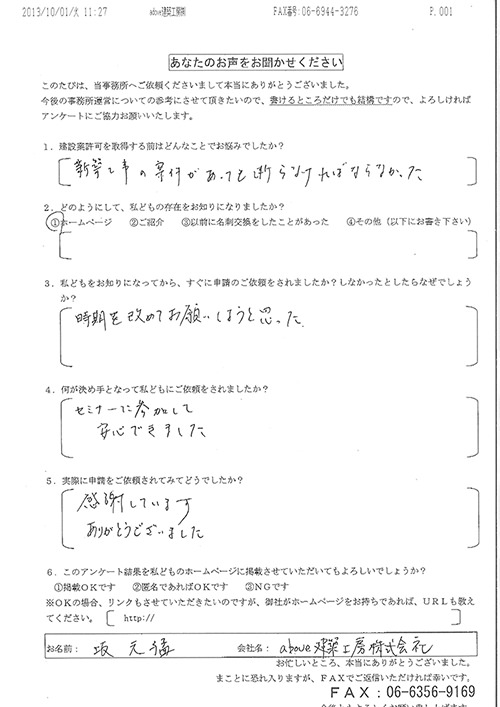 2013/10/01/火 11:27 above建築工房㈱ FAX番号:06-6944-3276 P.001
あなたのお声をお聞かせください
このたびは、当事務所へご依頼くださいまして本当にありがとうございました。
今後の事務所運営についての参考にさせて頂きたいので、書けるところだけでも結構ですので、よろしければ
アンケートにご協力お願いいたします。
1．建設業許可を取得する前はどんなことでお悩みでしたか？
新築工事の寄付があっても断らなければならなかった
2．どのようにして、私どもの存在をお知りになりましたか？
①ホームページ ②ご紹介 ③以前に名刺交換をしたことがあった ④その他（以下にお書き下さい）
3．私どもをお知りになってから、すぐに申請のご依頼をされましたか？しなかったとしたらなぜでしょう
か？
時期を改めてお願いしようと思った
4．何が決め手となって私どもにご依頼をされましたか？
セミナーに参加して
安心できました
5．実際に申請をご依頼されてみてどうでしたか？
感謝しています
ありがとうございました
6．このアンケート結果を私どものホームページに掲載させていただいてもよろしいでしょうか？
①掲載ＯＫです ②匿名であればＯＫです ③ＮＧです
※ＯＫの場合、リンクもさせていただきたいのですが、御社がホームページをお持ちであれば、ＵＲＬも教え
てください。 http://
お名前： 坂元 会社名： above建築工房株式会社
お忙しいところ、本当にありがとうございました。
まことに恐れ入りますが、ＦＡＸでご返信いただければ幸いです。
ＦＡＸ：06-6356-9169